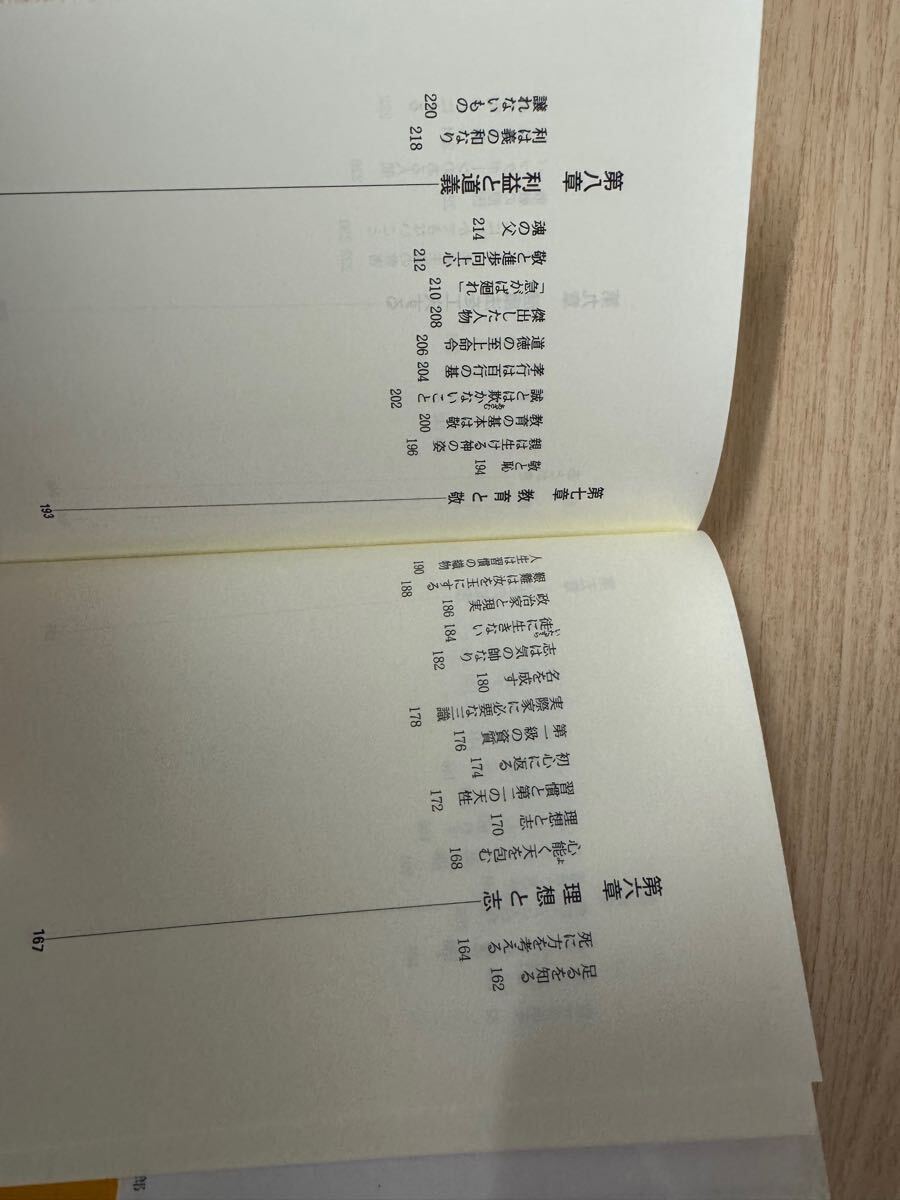 足るを知る 162
死に方を考える 164
第六章 理想と志 167
心能く天を包む 168
よ
理想と志 170
習慣と第二の天性 172
初心に返る 174
第一級の資質 176
実際家に必要な三識 178
名を成す 180
志は気の帥なり 182
徒に生きない 184
いたずら
政治家と現実 186
艱難は汝を玉にする 188
人生は習慣の織物 190
第七章 教育と敬 193
敬と恥 194
親は生ける神の姿 196
教育の基本は敬 200
誠とは欺かないこと 202
あざむ
孝行は百行の基 204
道徳の至上命令 206
傑出した人物 208
「急がば廻れ」 210
敬と進歩向上心 212
魂の父 214
第八章 利益と道義
利は義の和なり 218
譲れないもの 220
郎